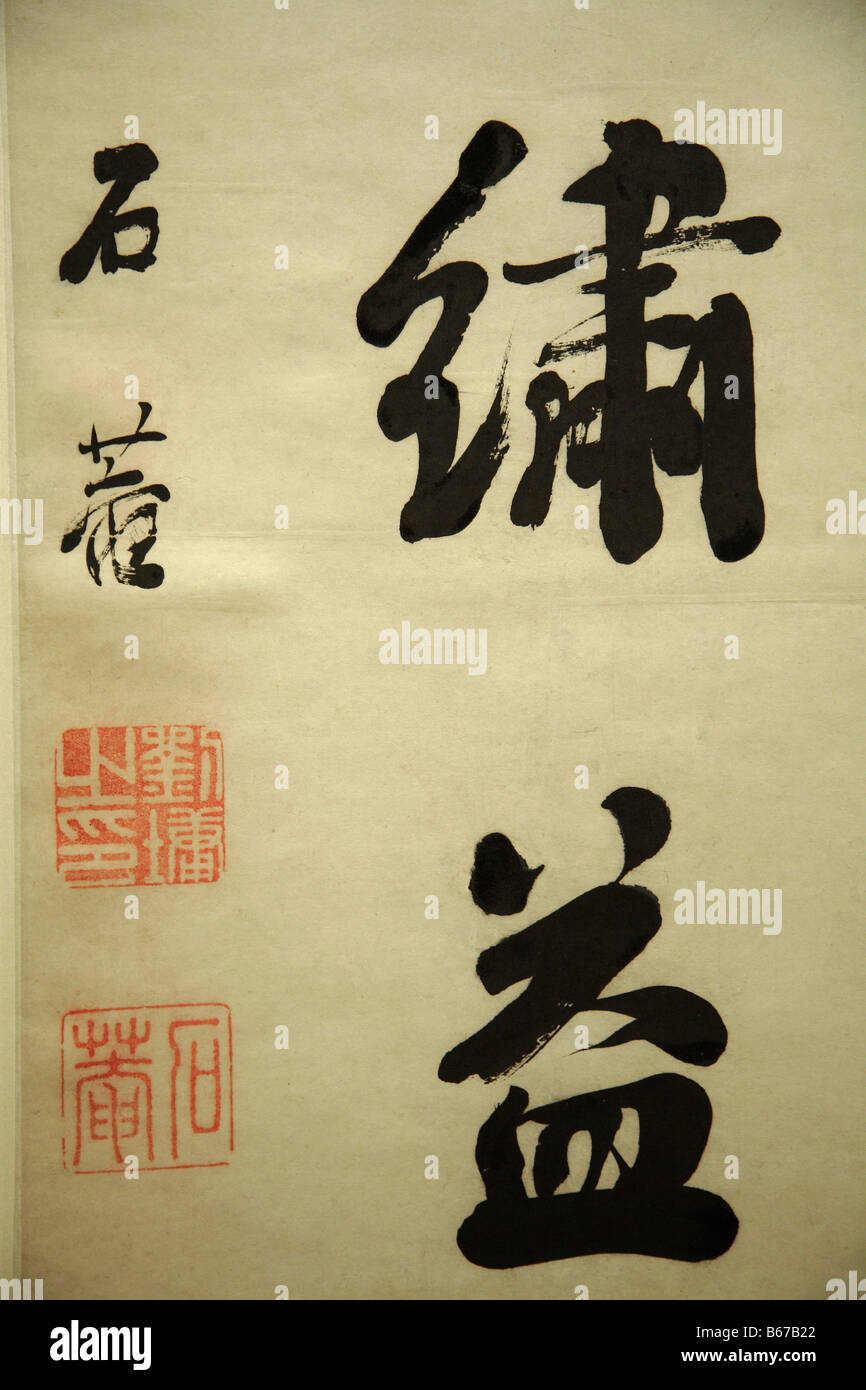 繡益
石菴
劉墉之印
石菴
alamy
alamy
alamy
alamy
Image ID: B67B22
www.alamy.com